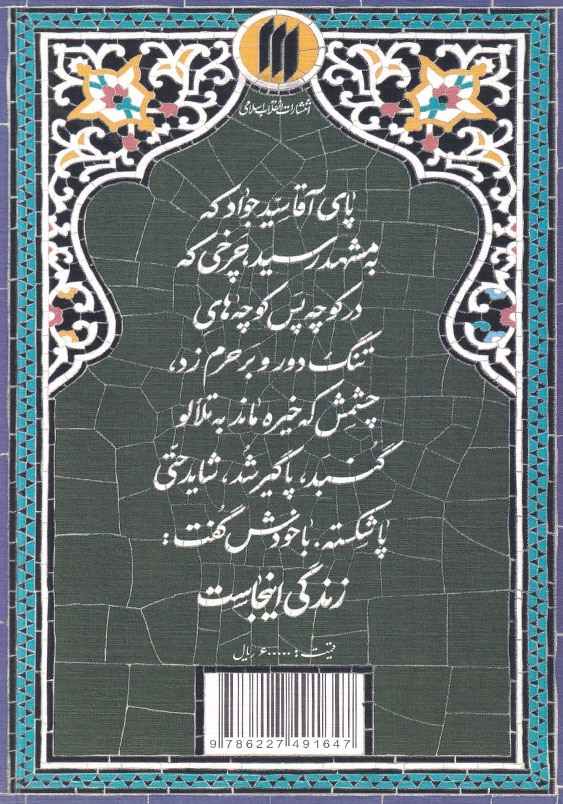 انتشارات انقلاب اسلامی
پای آقا سیّد جواد که
به مشهد رسید، چرخی که
در کوچه پس کوچه‌های
تنگ دور و بر حرم زد،
چشمش که خیره ماند به تلألو
گنبد، پاگیر شد، شاید حتّی
پا شکسته. با خودش گفت:
زندگی اینجاست
قیمت: ۶۰۰۰۰۰ ریال
9 786227 491647